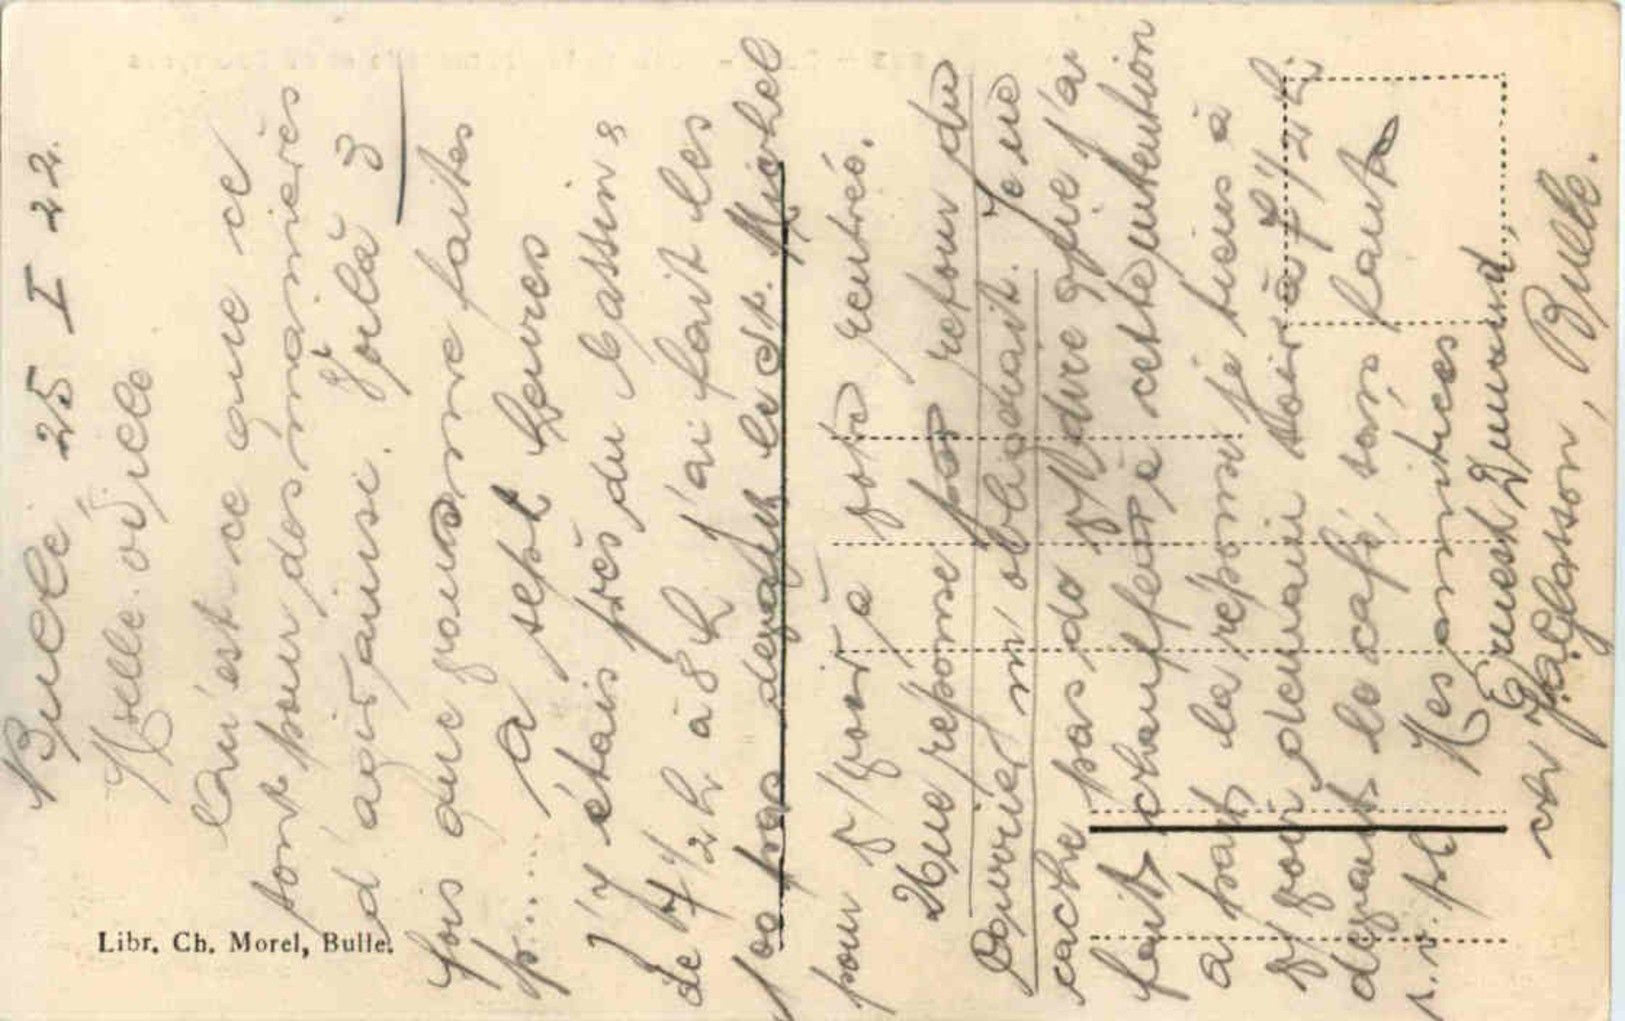 Bulle 25 I 22.
Melle Odile
Qu'est ce que ce
sont pour des manières
d'agir ainsi. Voilà 3
fois que vous me faites
p..... A sept heures
j'y étais près du bassin &
de 7 1/2 h à 8 h j'ai fait les
100 pas devant le St. Michel
pour v/voir à votre rentrée.
Une réponse par retour du
courrier m'obligerait. Je ne
cache pas de v/dire que j'ai
fait cette intention
a part la réponse je tiens à
v/voir demain soir à 7 1/2 h
devant le café, sans faute
r.v.pl Mes amitiés
Ernest Dumont,
Glasson, Bulle.
Libr. Ch. Morel, Bulle.